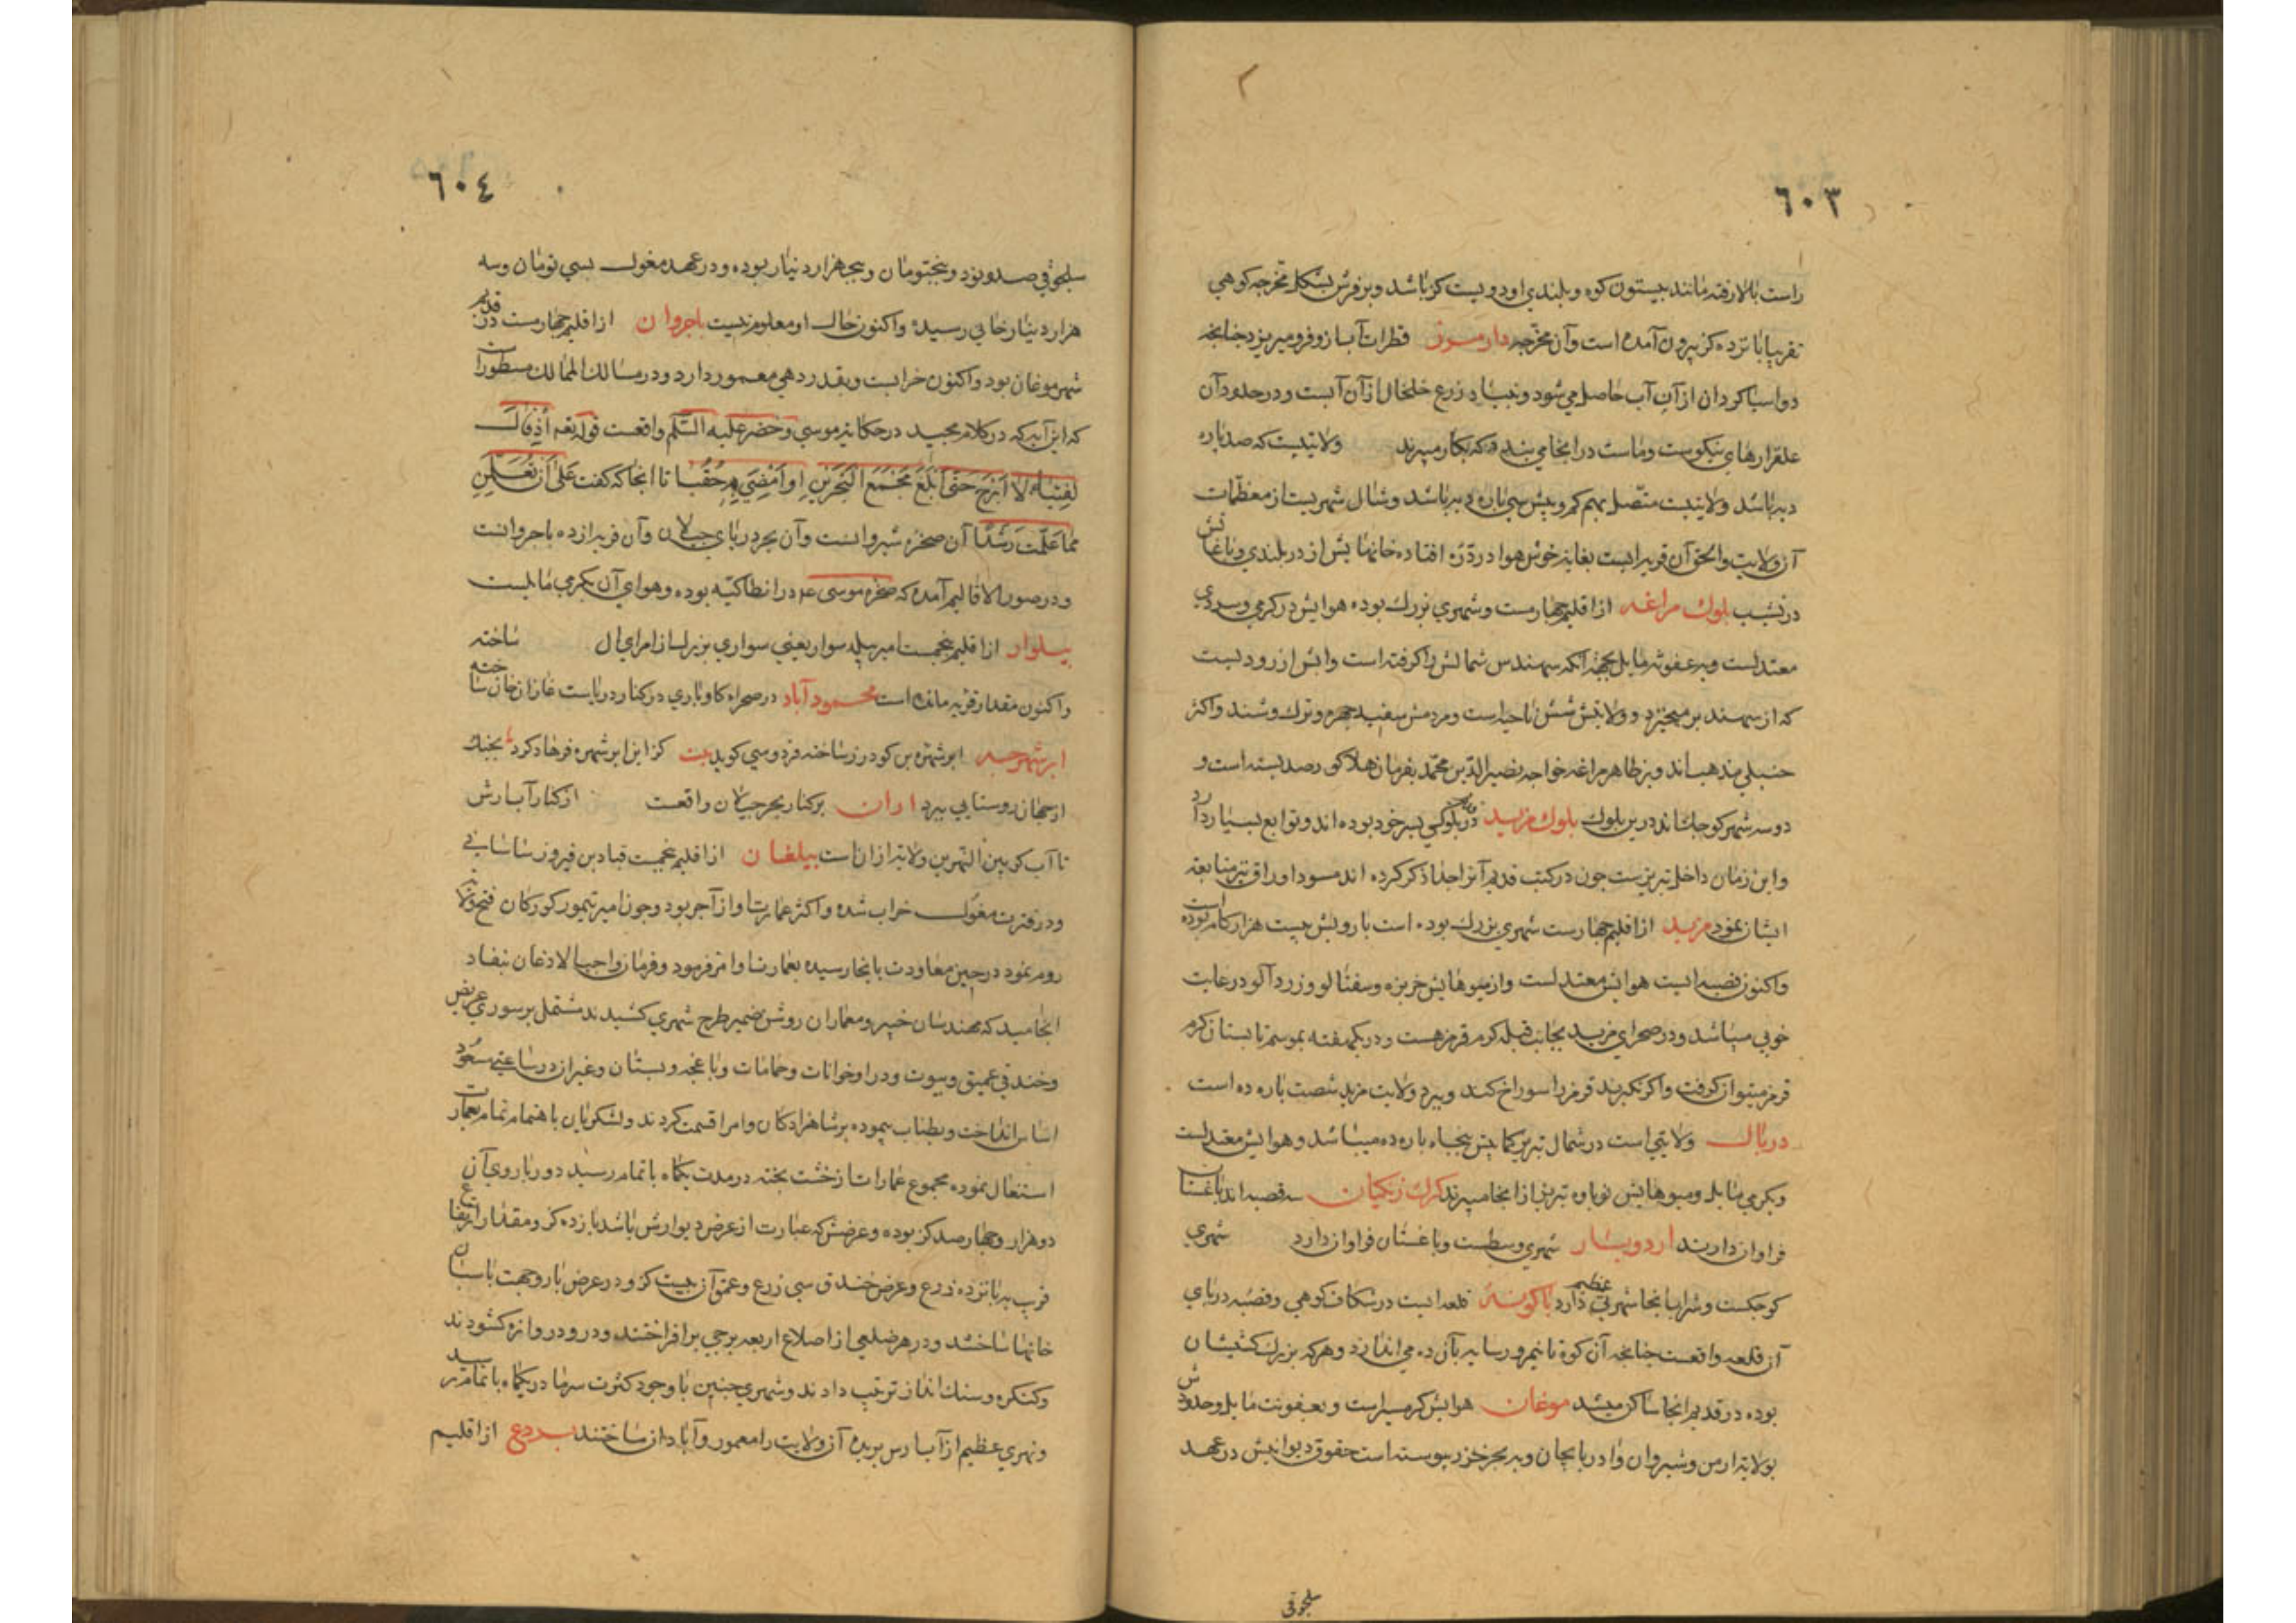 ٦٠٣
راست بالا رفته مانند بیستون کوه و بلندی او دویست کز باشد و بر فرش بشکل مخرجه کوهی
تقریبا پانزده کز بیرون آمده است و آن مخرجه دارمرز قطرات آب ازو فرو میریزد چنانچه
دو آسیا کردان از آن آب حاصل می شود و زرع خلخال از آن آبست و در حدود آن
علفزارهای نیکوست و ماست در انجا می بندد که بکار میبرند ولایتیست که صد پاره
دیه باشد ولایتیست متصل بهم کم و بیش سی پاره دیه باشد و شال شهریست از معظمات
آن ولایت والحق آن قریه ایست بغایة خوش هوا در دره افتاده خانهایش از در بلندی و باغاتش
در نشیب بلوک مراغه از اقلیم چهارمست و شهری بزرک بوده هوایش در کرمی و سردی
معتدلست و به عفونة مایل بجهة انکه سهند شمالش را کرفته است و آبش از رودیست
که از سهند بر میخیزد و ولایتش شش ناحیه است و مردمش سفید چهره و ترک وشند و اکثر
حنبلی مذهب اند و بر ظاهر مراغه خواجه نصیر الدین محمد بفرمان هلاکو رصد بسته است و
دو سه شهر کوچک اند درین بلوک بلوک مرند در بلوکی بسر خود بوده اند و توابع بسیار دارد
و این زمان داخل تبریزست چون در کتب قدیم آنرا جدا ذکر کرده اند مسود اوراق نیز متابعة
ایشان نمود مرند از اقلیم چهارمست شهری بزرک بوده است بارویش بیست هزار کام بوده است
و اکنون قصبه ایست هوایش معتدلست و از میوهایش خربزه و سفتالو و زردآلو در غایت
خوبی میباشد و در صحرای مرند بجانب قبله کرم قرمز هست و در یک هفته بموسم تابستان کرم
قرمز میتوان کرفت و اکر نکیرند قرمز را سوراخ کند و بپرد ولایت مرند شصت پاره ده است
ولایتی است در شمال تبریز کما بیش پنجاه پاره ده میباشد و هوایش معتدلست
و بکرمی مایل و میوهایش نوباوه تبریز از انجا میبرند کرکر زنکیان سه قصبه اند باغستان
فراوان دارند اردوباد شهری وسطست و باغستان فراوان دارد شهری
کوچکست و شراب انجا شهرتی عظیم دارد باکویه قلعه ایست در شکاف کوهی و قصبه در پای
آن قلعه واقعست چنانچه آن کوه تا نیم روز سایه بآن ده می اندازد و هر که بزرک کشیشان
بوده در قدیم انجا ساکن میشد موغان هوایش کرمسیرست و بعفونت مایل و حدودش
بولایة ارمن و شیروان و ادربایجان و به بحر خزر پیوسته است حقوق دیوانیش در عهد
سلجوقی
٦٠٤
سلجوقی صد و نود و پنج تومان و پنج هزار دینار بوده و در عهد مغول بسی تومان و سه
هزار دینار خانی رسیده و اکنون حال او معلوم نیست باجروان از اقلیم چهارمست در قدیم
شهر موغان بود و اکنون خرابست و بقدر دهی معمور دارد و در مسالک الممالک مسطور است
که این آیه که در کلام مجید در حکایة موسی و خضر علیه السلم واقعست قوله تعه أذ قال
لفتیاه لا ابرح حتی ابلغ مجمع البحرین او امضی حقبا تا انجا که کفت علی ان تعلمن
مما علمت رشدا آن صخره شیروانست و آن بحر دریای جیلان و آن قریه از ده باجروانست
و در صور الاقالیم آمده که صخره موسی عم در انطاکیه بوده و هوای آن بکرمی مایلست
پیلوار از اقلیم پنجمست امیر پیله سوار یعنی سواری بزرک از امرای ال ساخته
و اکنون مقدار قریه مانده است محمودآباد در صحراء کاوباری در کنار دریاست غازان خان ساخته
ابرشهر ابرشهره بن کودرز ساخته فردوسی کوید بیت کز این ابرشهره فرهاد کرد بجنک
از جهان روستایی ببرد اران بر کنار بحر جیلان واقعست از کنار آب ارش
تا آب کر بین النهرین ولایة اران است بیلقان از اقلیم پنجمست قباد بن فیروز ساسانی
و در فترت مغول خراب شده و اکثر عمارت او از آجر بود و چون امیر تیمور کورکان فتح ولایت
روم نمود در حین معاودت بانجا رسیده بعمارت او امر فرمود و فرمان واجب الاذعان بنفاد
انجامید که مهندسان خبیر و معماران روشن ضمیر طرح شهری کشیدند مشتمل بر سوری عریض
و خندقی عمیق و بیوت و در او خوانات و حمامات و باغچه و بستان و غیر ان در ساعتی مسعود
اساس انداخت و بطناب پیموده بر شاهزادکان و امرا قسمت کردند و لشکریان باهتمام تمام بعمارت
اشتغال نموده مجموع عمارات از خشت پخته در مدت یکماه باتمام رسید دور باروی آن
دو هزار و چهار صد کز بوده و عرضش که عبارت از عرض دیوارش باشد یازده کز و مقدار ارتفاع
قریب به پانزده ذرع و عرض خندق سی زرع و عمق آن بیست کز و در عرض بارو جهت پاسبان
خانها ساختند و در هر ضلعی از اضلاع اربعه برجی برافراختند و در و دروازه کشودند
و کنکره و سنک انداز ترتیب دادند و شهری چنین با وجود کثرت سرما در یکماه باتمام رسید
و نهری عظیم از آب ارس بریده آن ولایت را معمور و آبادان ساختند بردع از اقلیم